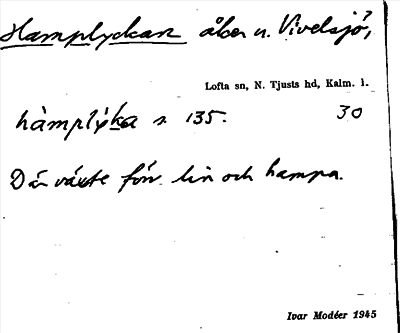 Hamplyckan åker u. Vivelsjö,
Lofta sn, N. Tjusts hd, Kalm. l.
hàmplỳka s. 135. 30
Där växte förr lin och hampa.
Ivar Modéer 1945